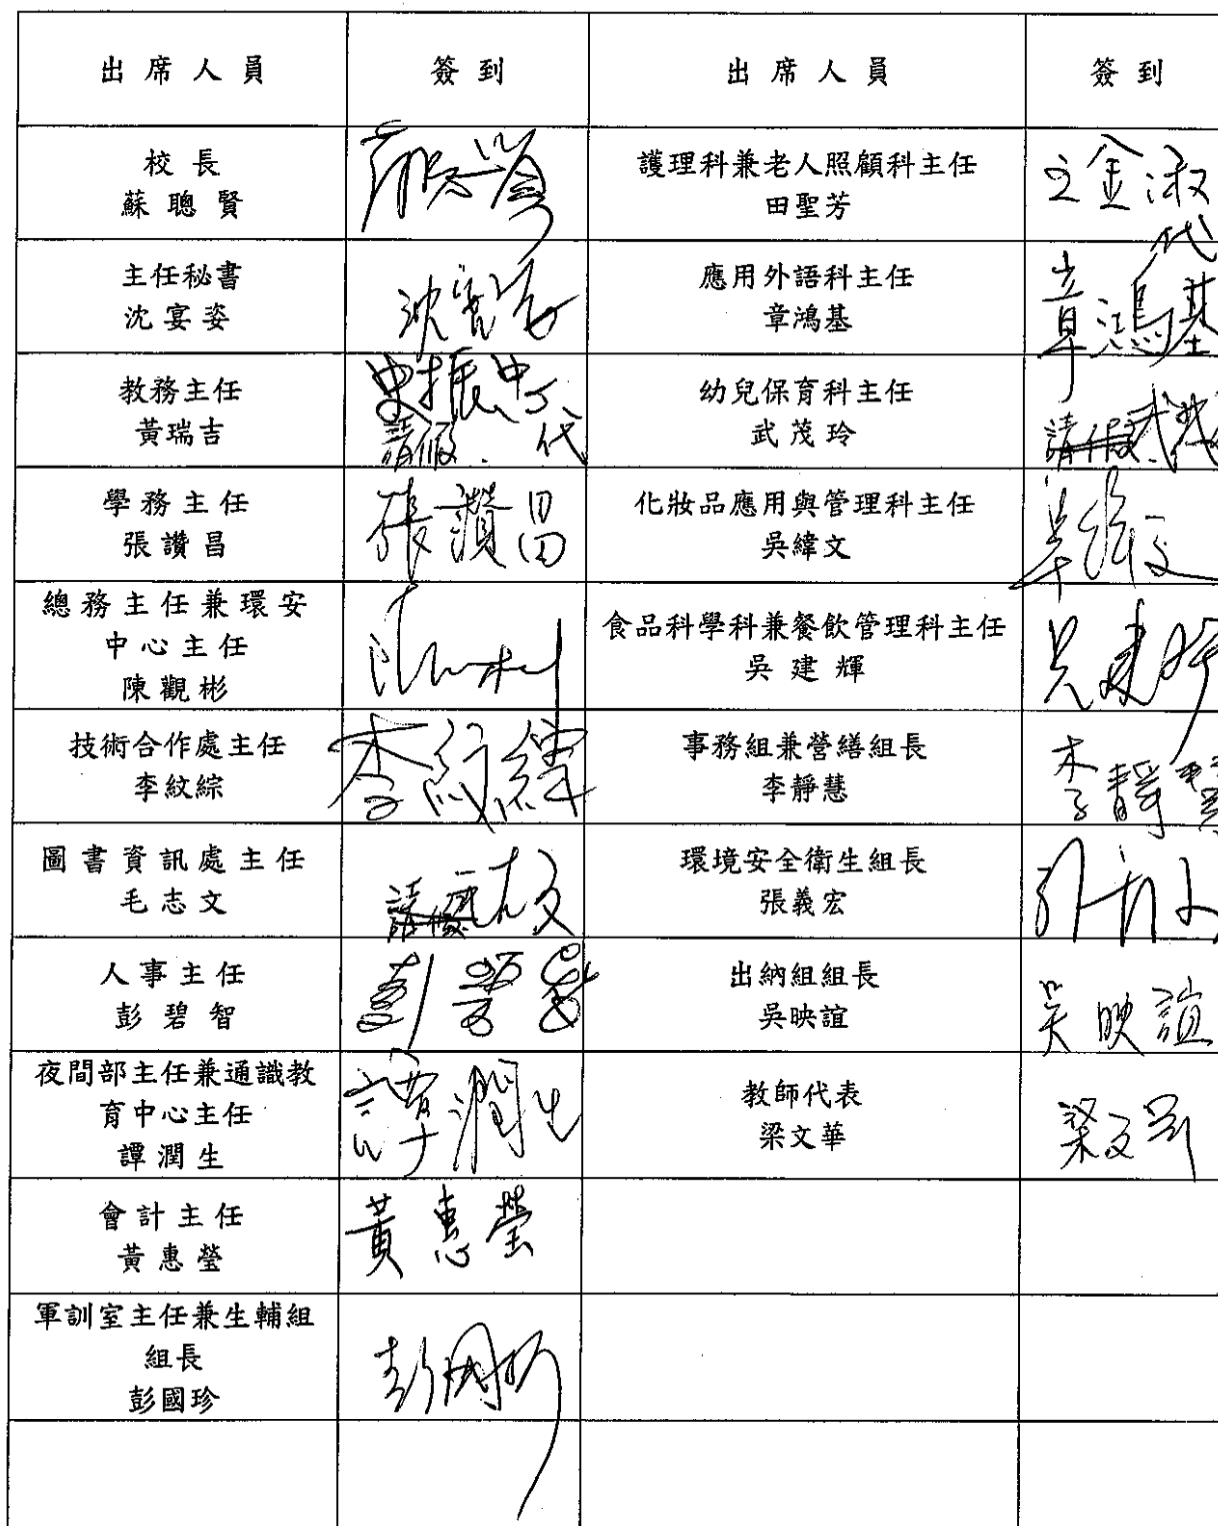 出席人員 簽到 出席人員 簽到
校長
蘇聰賢
護理科兼老人照顧科主任
田聖芳
金淑
代
主任秘書
沈宴姿
沈宴姿
應用外語科主任
章鴻基
章鴻基
教務主任
黃瑞吉
史振中
請假 代
幼兒保育科主任
武茂玲
請假 武茂
學務主任
張讚昌
張讚昌
化妝品應用與管理科主任
吳緯文
吳緯文
總務主任兼環安
中心主任
陳觀彬
食品科學科兼餐飲管理科主任
吳建輝
吳建輝
技術合作處主任
李紋綜
李紋綜
事務組兼營繕組長
李靜慧
李靜慧
圖書資訊處主任
毛志文
請假
環境安全衛生組長
張義宏
人事主任
彭碧智
彭碧智
出納組組長
吳映誼
吳映誼
夜間部主任兼通識教
育中心主任
譚潤生
譚潤生
教師代表
梁文華
梁文華
會計主任
黃惠瑩
黃惠瑩
軍訓室主任兼生輔組
組長
彭國珍
彭國珍